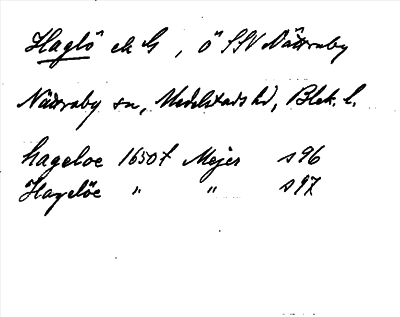 Haglö ek G, Ö SSV Nättraby
Nättraby sn, Medelstads hd, Blek. l.
hageloe 1650 t Mejer s 96
Hageløe " " s 97